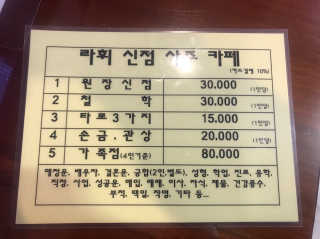 라휘 신점 사주 카페
(카드결제 10%)
1 원장신점 30.000 (1인당)
2 철 학 30.000 (1인당)
3 타로3가지 15.000 (1인당)
4 손금.관상 20.000 (1인당)
5 가족점(4인기준) 80.000
애정운, 배우자, 결혼운, 궁합(2인,별도), 성형, 학업, 진로, 유학,
직장, 사업, 성공운, 매입, 매매, 이사, 자식, 재물, 건강풍수,
부적, 택일, 작명, 기타 등...